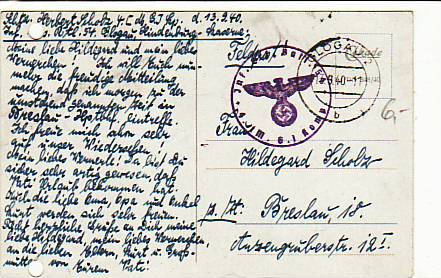 Schtz. Herbert Scholz 4. d. 13.2.40.
Inf. Ers. Btl. 54. Glogau Hindenburg-Kaserne.
Meine liebe Hildegard und mein liebes
Vernerchen! Ich will Euch nun
die freudige Mitteilung
machen, daß ich morgen zu der
genannten Zeit in
Breslau - Hptbhf. eintreffe.
Ich freue mich schon sehr
auf unser Wiedersehen!
Mein liebes Vernerle! Du bist Du
sicher sehr artig gewesen, daß
Vati Urlaub bekommen hat.
Auch die liebe Oma, Opa und Onkel
Kurt werden sich sehr freuen.
Recht herzliche Grüße an Dich meine
liebe Hildegard, mein liebes Vernerchen,
an die lieben Eltern, Kurt u. Groß-
mutter von Eurem Vati.
Feldpost
GLOGAU
40-11
b
Inf.
Frau
Hildegard Scholz
z. Zt. Breslau, 10.
Anzengruberstr. 12 I.
6,-